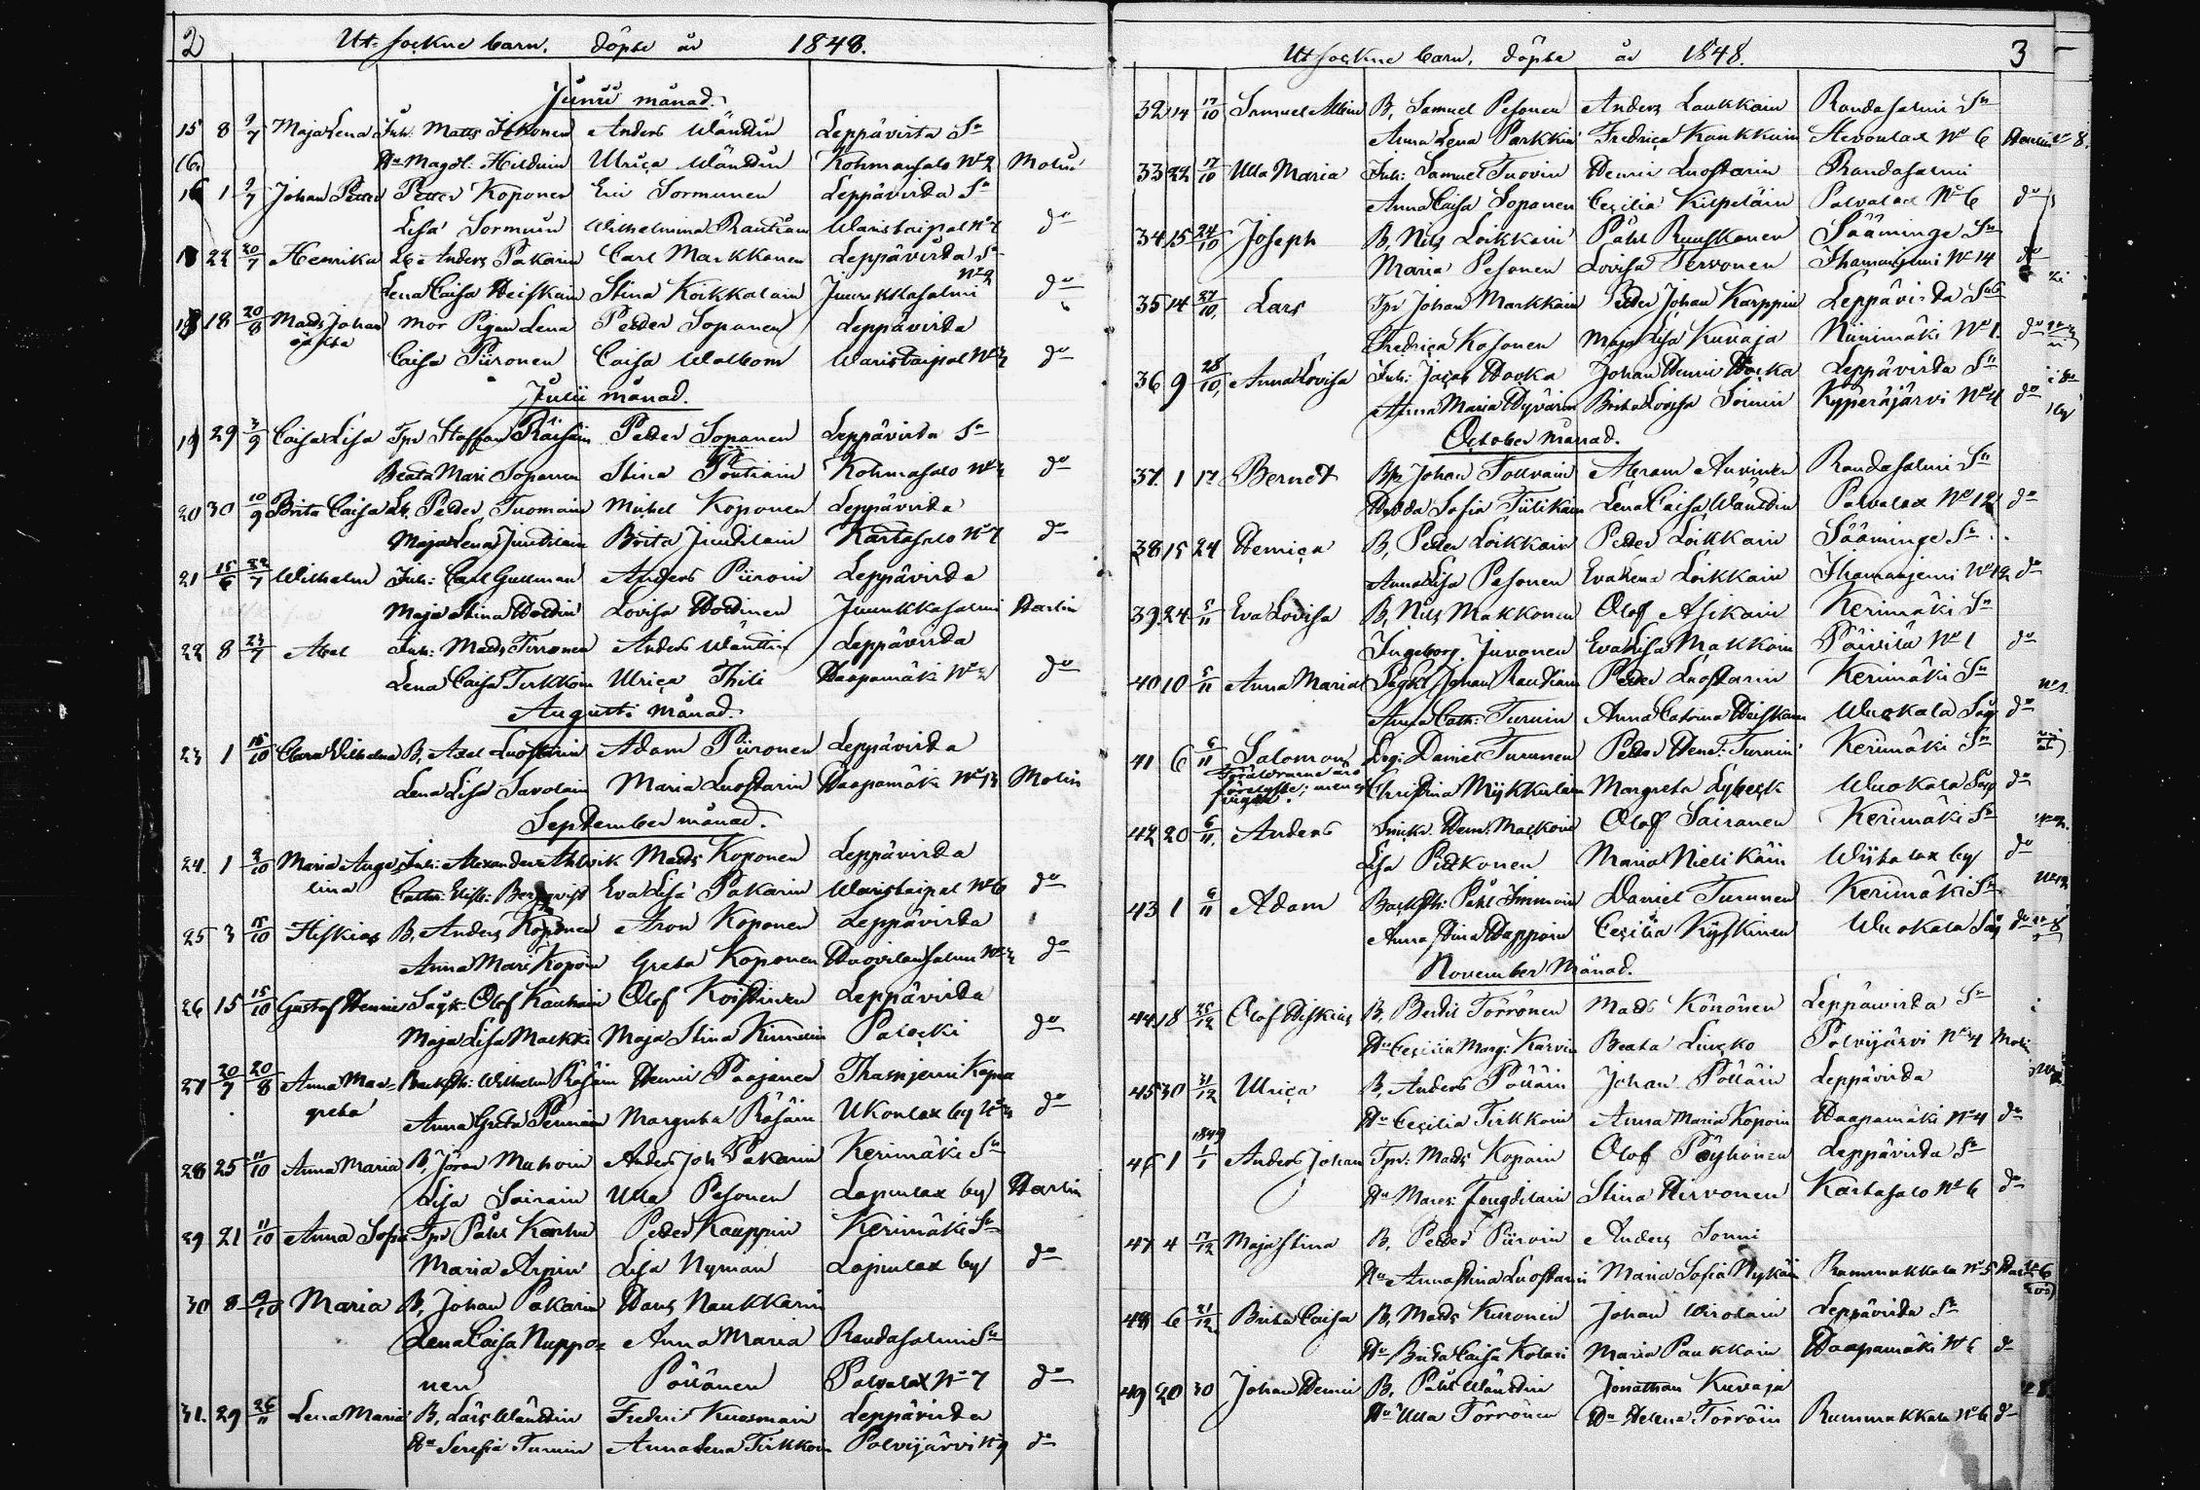 2 Ut-sockne barn. döpte år 1848.
Junii månad.
15 8 9/7 Maja Lena Inh. Matts Anders Wänttin Leppävirta Sn
Hu Magdl. Ulrica Wänttin Kohmansalo No 2 Molin
16 1 9/7 Johan Petter Petter Koponen Eric Sormunen Leppävirda Sn
Lisa Sormuin Wilhelmina Rautiain Waristaipal No do
22 20/7 Henrika Anders Pakarin Carl Markkanen Leppävirda Sn
Lena Caisa Heiskain Stina Koikkalain Juurikkasalmi No 2 do
18 20/8 Mads Johan mor Pigan Lena Petter Soponen Leppävirda
oäkta Caisa Piironen Caisa Walbom Waristaipal No do
Julii månad.
19 29 3/9 Caisa Lisa Tpr Staffan Räisäin Petter Sopanen Leppävirda Sn
Beata Mari Sopanen Stina Pöntiäin Kohmasalo No do
20 30 10/9 Brita Caisa Petter Tuomain Michel Koponen Leppävirda
Maja Lena Jundilain Brita Jundilain Kartasalo No 7 do
21 15/6 22/7 Wilhelm Inh: Carl Gullman Anders Piiroin Leppävirda
Maja Stina Lovisa Juurikkasalmi Harlin
22 8 23/7 Abel Inh: Mads Tirronen Anders Wänttin Leppävirda
Lena Caisa Tirkkoin Ulrica Thili Haapamäki No do
Augusti månad.
23 1 15/10 Clara Vilhelmina B. Axel Luostarin Adam Piironen Leppävirda
Lena Lisa Savolain Maria Luostarin Haapamäk No 13 Molin
September månad.
24 1 2/10 Maria Augus- Inh: Alexander Ahlvik Mads Koponen Leppävirda
tina Cathr: Bergqvist Eva Lisa Pakarin Waristaipal No 6 do
25 3 15/10 Hiskias B. Anders Koponen Aron Koponen Leppävirda
Anna Mari Kopoin Greta Koponen No do
26 15 15/10 Gustaf Henric Olof Kauhain Olof Koistinen Leppävirda
Maja Lisa Markki Maja Stina Kinnuin Palocki do
27 20/7 20/8 Anna Mar- Backsth: Wilhelm Räsäin Henric Paajanen Kapel
greta Anna Greta Pennain Margreta Räsäin Ukonlax by No do
28 25 11/10 Anna Maria B. Jöran Muhoin Anders Joh Pakarin Kerimäki Sn
Lisa Soirain Ulla Pesonen Lapinlax by Harlin
29 21 11/10 Anna Sofia Tpr Påhl Karhu Petter Kauppin Kerimäki Sn
Maria Arpin Lisa Nyman Lapinlax by do
30 8 Maria B. Johan Pakarin Hans Naukkarin
Lena Caisa Nuppo- Anna Maria Randasalmi Sn
nen Pöllänen Palvalax No 7 do
31. 29 26/11 Lena Maria B. Lars Wänttin Fredric Kuosmain Leppävirda
Hu Serefia Turuin Anna Lena Tirkkoin Polvijärvi No do
Ut sockne barn, döpte år 1848. 3
32 14 17/10 Samuel Albin B. Samuel Pesonen Anders Laukkain Randasalmi Sn
Anna Lena Parkkin Fredrica Kaukkain Hevonlax No 6 Harlin
33 22 17/10 Ulla Maria Inh: Samuel Tuovin Henric Luostarin Randasalmi
Anna Caisa Sopanen Cecilia Kilpeläin Palvalax No 6 do
34 15 24/10 Joseph B. Nils Loikkain Påhl Ruuskanen Sääminge Sn
Maria Pesonen Lovisa Tervonen Ihamanjemi No 14 do
35 14 27/10 Lars Tpr Johan Markkain Petter Johan Karppin Leppävirda Sn
Fredrica Kosonen Maja Lisa Kuvaja Niinimäki No 1. do
36 9 28/10 Anna Lovisa Inh: Jacob Johan Henric Leppävirda Sn
Anna Maria Brita Lovisa Soinin Kyperäjärvi No 4 do
October månad.
37. 1 17 Berndt Johan Tolvain Abram Auvinen Randasalmi Sn
Hedda Sofia Tiilikain Lena Caisa Wänttin Palvalax No 12 do
38 15 24 Henrica B. Petter Loikkain Petter Loikkain Sääminge Sn
Anna Lisa Pesonen Eva Lena Loikkain Ihamanjemi No 12 do
39 24 5/11 Eva Lovisa B. Nils Makkonen Olof Asikain Kerimäki Sn
Ingeborg Juvonen Eva Lisa Makkoin Päivilä No 1 do
40 10 5/11 Anna Maria Johan Rautiain Petter Luostarin Kerimäki Sn
Anna Cath: Turuin Anna Catrina Heiskain Wuokala Såg do
41 6 6/11 Salomon Daniel Turunen Petter Henr: Turuin Kerimäki Sn
Föräldrarne äro förelysta; men ej vigda. Christina Mykkeläin Margreta Lybeck Wuokala Såg do
42 20 6/11 Anders Henr: Malkoin Olof Sairanen Kerimäki Sn
Lisa Pitkonen Maria Nielikäin Wiitalax by do
43 1 6/11 Adam Backsth: Påhl Immoin Daniel Turunen Kerimäki Sn
Anna Stina Happoin Cecilia Kyskinen Wuokala Såg do
November Månad.
44 18 26/12 Olof Hiskias B. Bertil Törrönen Mads Könönen Leppäwirda Sn
Hu Cecilia Marg: Karvin Beata Lincko Polvijärvi No 4 Molin
45 30 31/12 Ulrica B. Anders Pölläin Johan Pölläin Leppävirda
Hu Cecilia Tirkkoin Anna Maria Kopoin Haapamäki No 4 do
46 1 1849 1/1 Anders Johan Tpr: Mads Kopoin Olof Pöyhönen Leppävirda Sn
Hu Marg: Fougdilain Stina Hirvonen Kartasalo No 6 do
47 4 17/12 Maja Stina B. Petter Piiroin Anders Sonni
Hu Anna Stina Luostarin Maria Sofia Nykäin Rummukkala No 5
48 6 21/12 Brita Caisa B. Mads Kuronen Johan Wirolain Leppävirda Sn
Hu Brita Caisa Kolari Maria Paukkoin Haapamäki No 6 do
49 20 30 Johan Henric B. Påhl Wänttin Jonathan Kuvaja
Hu Ulla Törrönen Hu Helena Törröin Rummukkala No 6 do